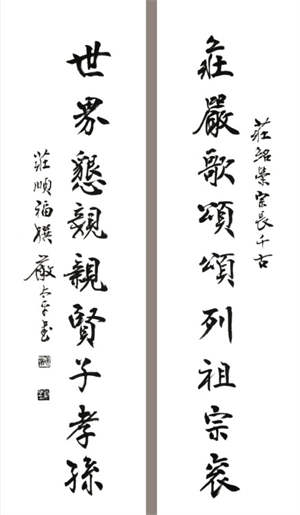 莊紹榮宗長千古
莊嚴歌頌頌列祖宗袞
世界懇親親賢子孝孫
莊順福撰 書